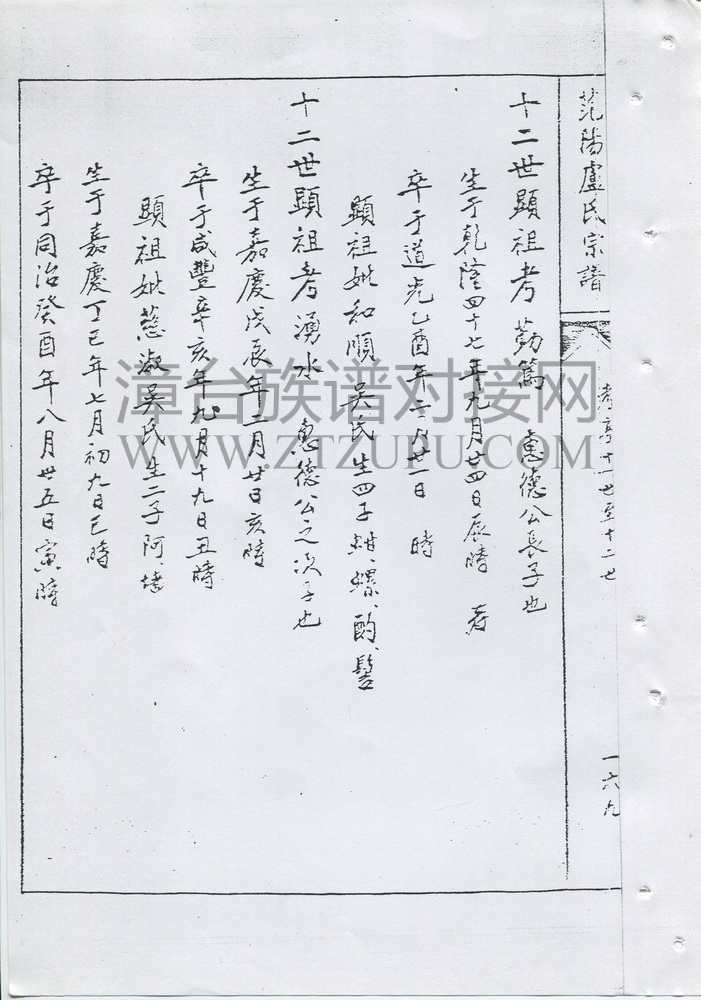 范陽盧氏宗譜
十一世至十二世
一六九
十二世顯祖考勤篤 惠德公長子也
生于乾隆四十七年九月廿四日辰時
卒于道光乙酉年二月廿一日 時
顯祖妣和順 吳氏生四子 螺、酌、
十二世顯祖考湧水 惠德公之次子也
生于嘉慶戊辰年二月廿日亥時
卒于咸豐辛亥年九月十九日丑時
顯祖妣慈淑吳氏生二子阿、
生于嘉慶丁巳年七月初九日巳時
卒于同治癸酉年八月廿五日寅時
漳台族谱对接网
WWW.ZTZUPU.COM